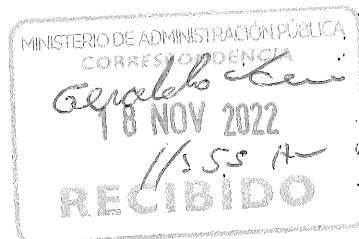 MINISTERIO DE ADMINISTRACIÓN PÚBLICA
CORRESPONDENCIA
Geraldo
18 NOV 2022
11:55 A
RECIBIDO